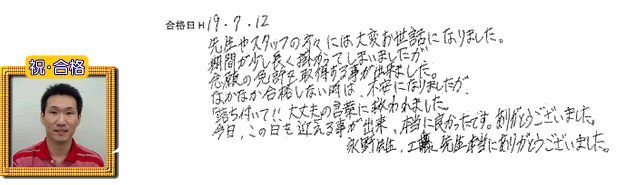 合格日H19.7.12
先生やスタッフの方々には大変お世話になりました。
期間が少し長く掛かってしまいましたが
念願の免許を取得する事が出来ました。
なかなか合格しない時は、不安になりましたが、
「落ち付いて!!大丈夫」の言葉に救われました。
今日、この日を迎える事が出来、本当に良かったです。ありがとうございました。
永野先生、工藤先生本当にありがとうございました。
祝・合格